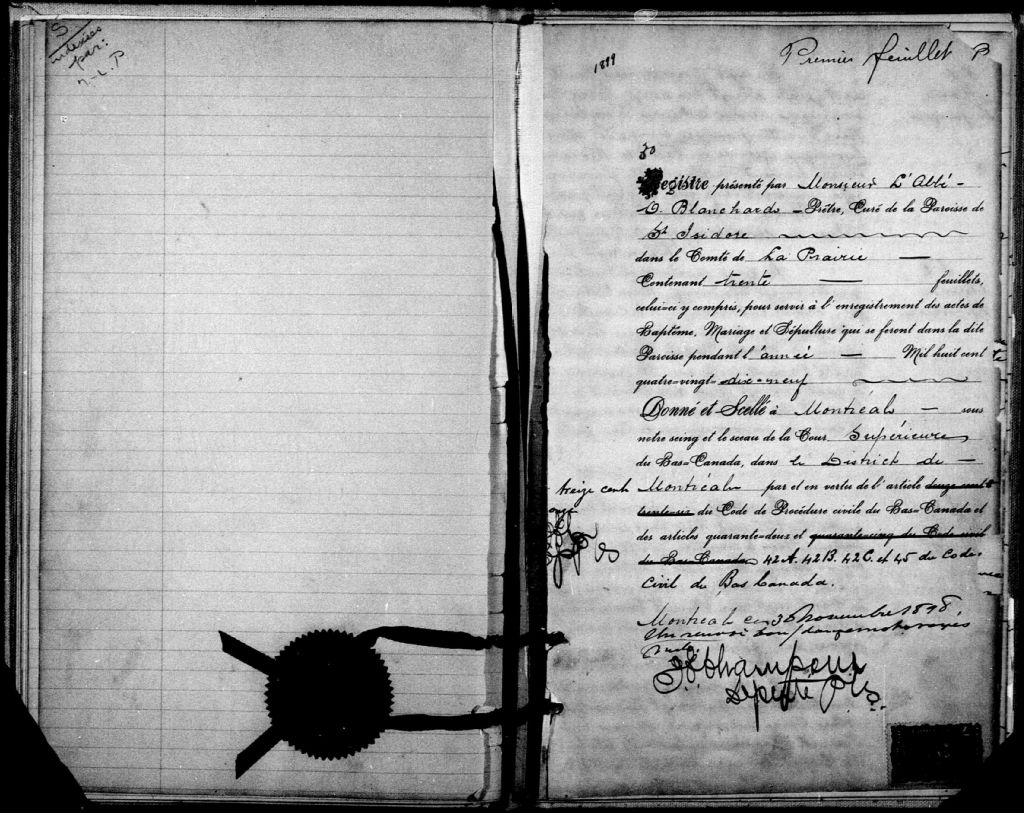 S
indexées
par:
1899
Premier feuillet
30
Registre présenté par Monsieur L'Abbé -
D. Blanchard - Prêtre, Curé de la Paroisse de
St Isidore
dans le Comté de La Prairie —
Contenant trente — feuillets,
celui-ci y compris, pour servir à l'enregistrement des actes de
Baptême, Mariage et Sépulture qui se feront dans la dite
Paroisse pendant l'année — Mil huit cent
quatre-vingt-dix-neuf
Donné et Scellé à Montréal — sous
notre seing et le sceau de la Cour Supérieure
du Bas-Canada, dans le District de —
treize cent
onze
Montréal par et en vertu de l'article douze cent
trente-six du Code de Procédure civile du Bas-Canada et
des articles quarante-deux et quarante-cinq du Code civil
du Bas-Canada 42A. 42B. 42C. et 45 du Code
Civil du Bas Canada.
Montréal ce 30 Novembre 1898.
Un renvoi bon / mots rayés
nuls.
Champoux
Dépté P.C.S.